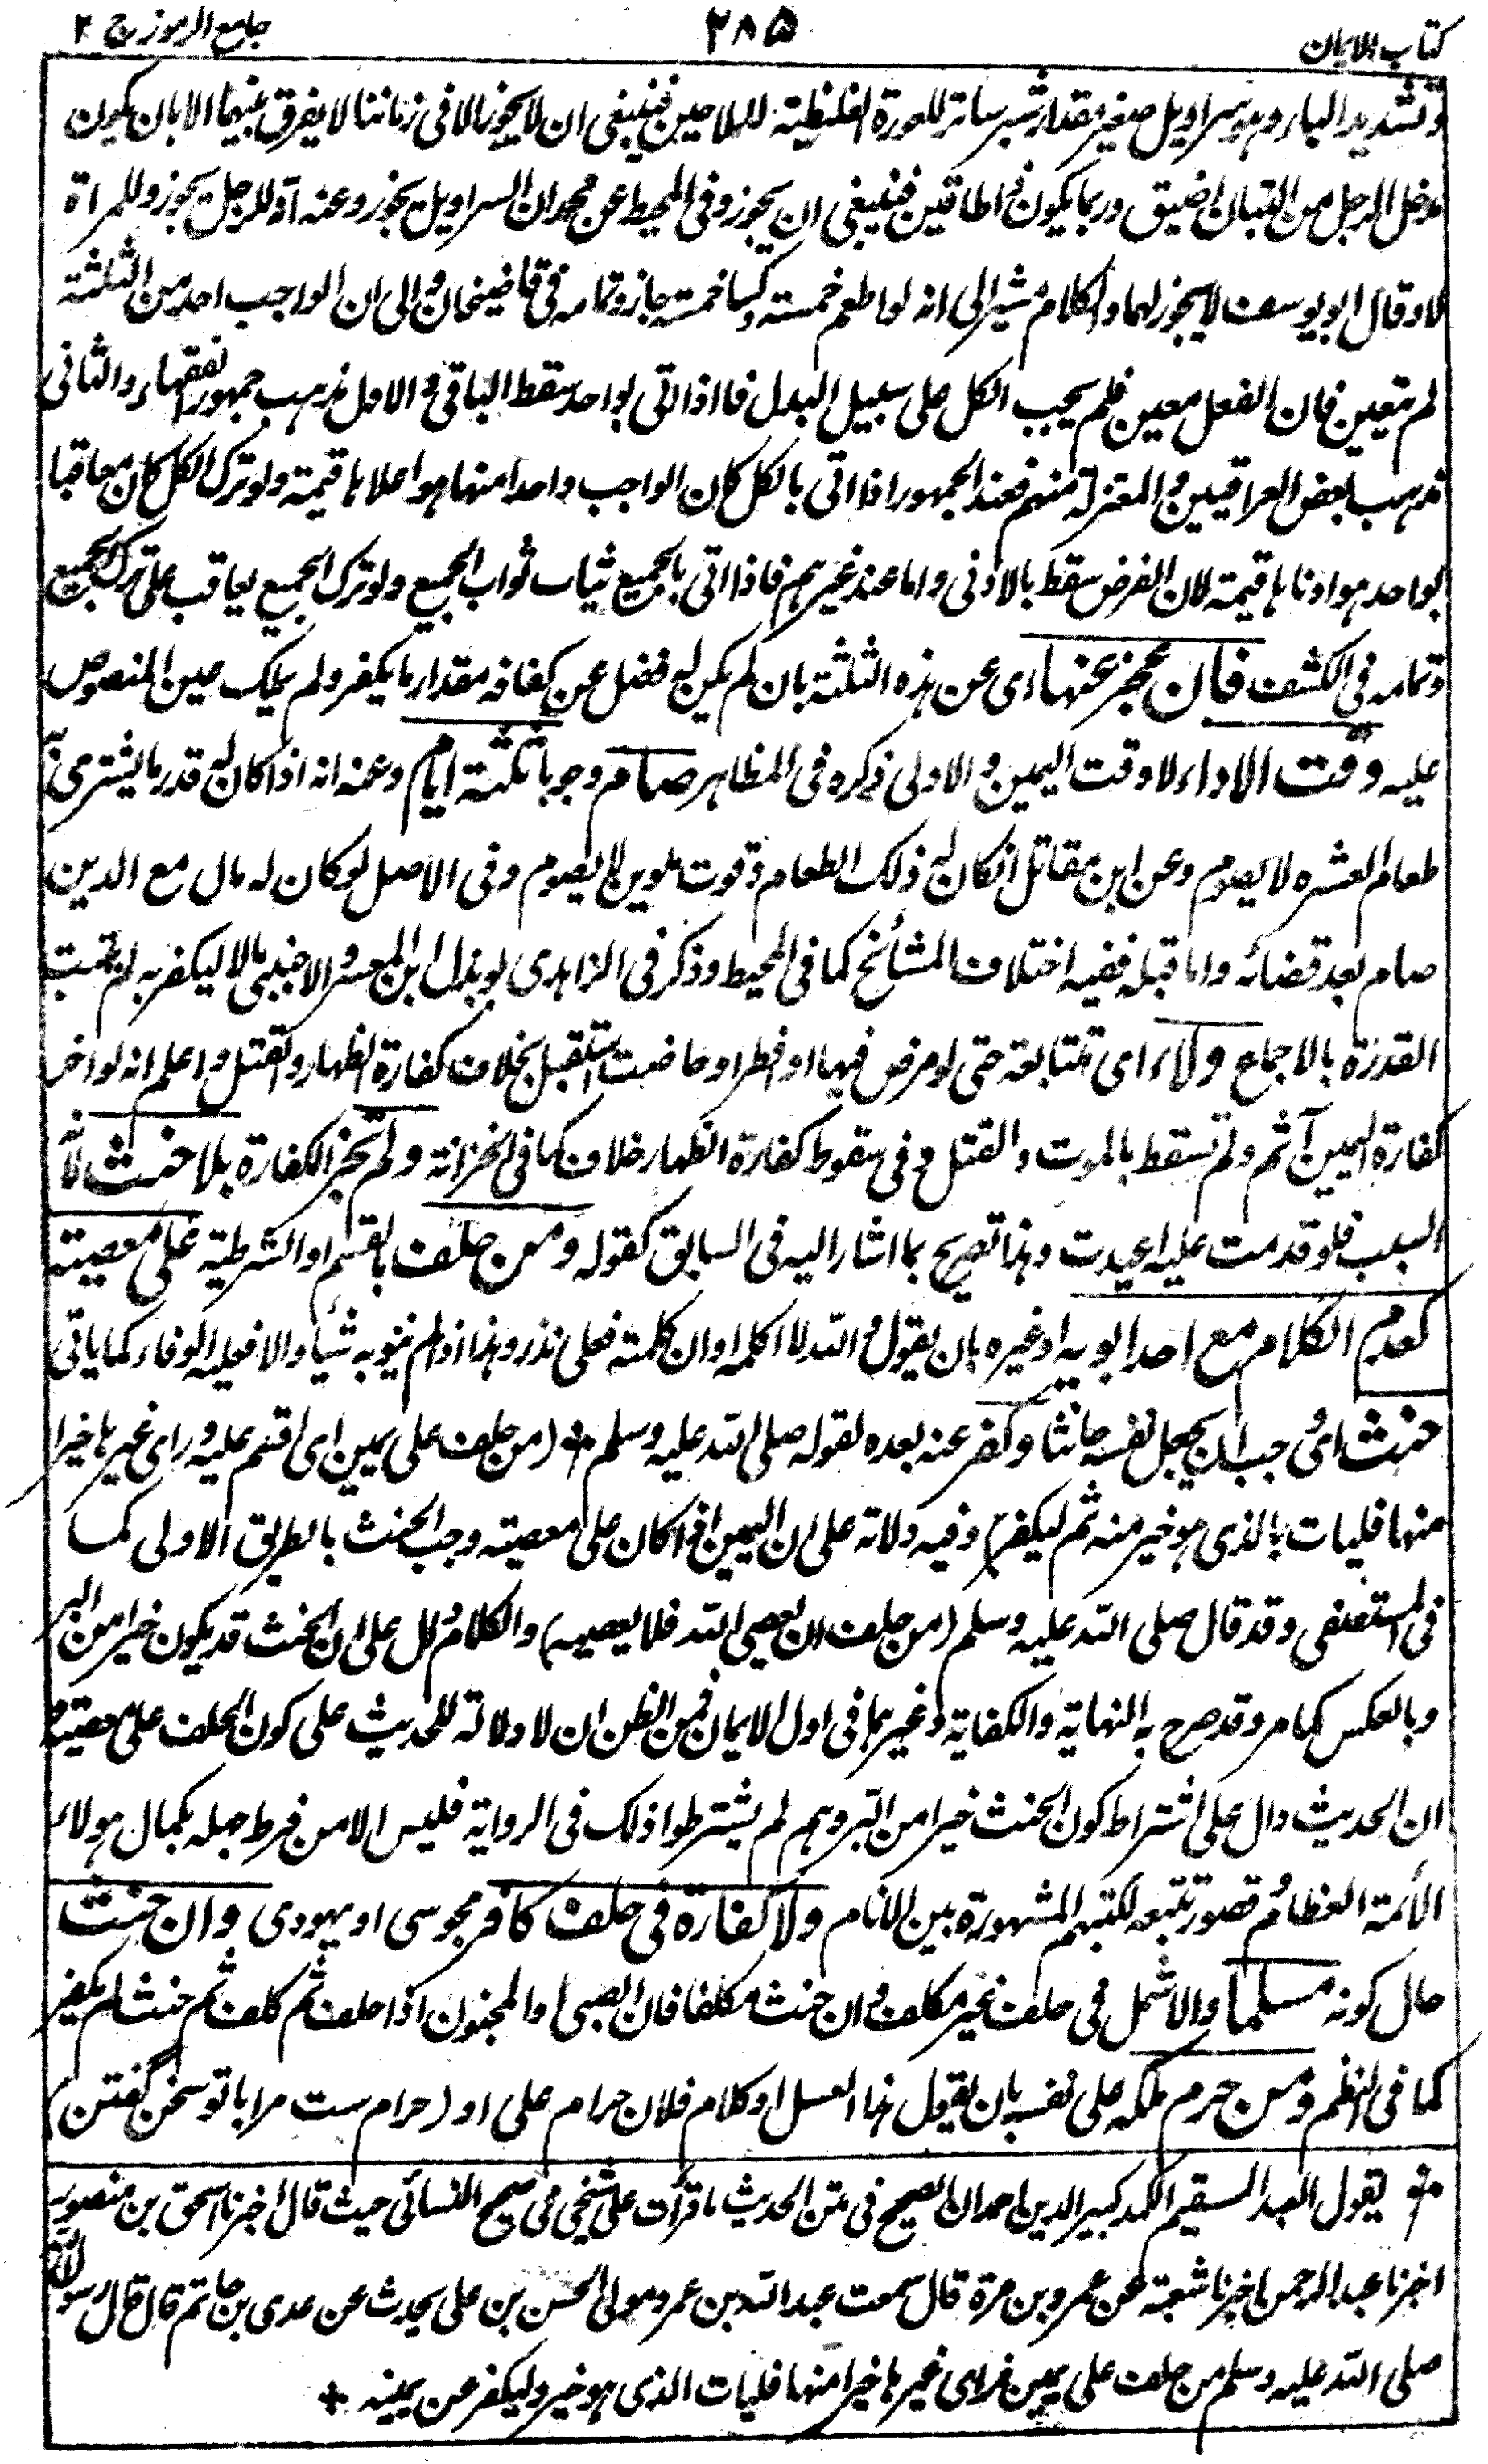 كتاب الايمان ٢٨٥ جامع الرموز ج ٢
وتشديد الباء وهو سراويل صغير مقدار شبر ساتر للعورة الغليظة للملاحين فينبغى ان لا يجوز الا فى زماننا لا يفرق بينهما الا بان يكون
مدخل الرجل من التبان اضيق وربما يكون ذا طاقين فينبغى ان يجوز وفى المحيط عن محمد ان السراويل يجوز وعنه انه للرجل يجوز وللمراة
لا وقال ابو يوسف لا يجوز لهما والكلام مشير الى انه لو اطعم خمسة وكسا خمسة جاز وتمامه فى قاضيخان والى ان الواجب احد من الثلثة
لم يتعين فان الفعل معين فلم يجب الكل على سبيل البدل فاذا اتى بواحد سقط الباقى والاول مذهب جمهور الفقهاء والثانى
مذهب بعض العراقيين والمعتزلة منهم فعند الجمهور اذا اتى بالكل كان الواجب واحدا منها هو اعلاها قيمة ولو ترك الكل كان معاقبا
بواحد هو ادناها قيمة لان الفرض سقط بالادنى واما عند غيرهم فاذا اتى بالجميع يثاب ثواب الجميع ولو ترك الجميع يعاقب على ترك الجميع
وتمامه فى الكشف فان عجز عنها اى عن هذه الثلثة بان لم يكن له فضل عن كفافه مقدار ما يكفر ولم يملك عين المنصوص
عليه وقت الاداء لا وقت اليمين والاولى ذكره فى المظاهر صام وجوبا ثلثة ايام وعنه انه اذا كان له قدر ما يشترى به
طعام العشره لا يصوم وعن ابن مقاتل ان كان له ذلك الطعام وقوت يومين لا يصوم وفى الاصل لو كان له مال مع الدين
صام بعد قضائه واما قبله ففيه اختلاف المشائخ كما فى المحيط وذكر فى الزاهدى لو بذل ابن المعسر والاجنبى مالا ليكفر به لم تثبت
القدرة بالاجماع ولاء اى متتابعة حتى لو مرض فيها او افطر او حاضت استقبل بخلاف كفارة الظهار والقتل واعلم انه لو اخر
كفارة اليمين آثم ولم تسقط بالموت والقتل وفى سقوط كفارة الظهار خلاف كما فى الخزانة ولم تجز الكفارة بلا حنث لانه
السبب فلو قدمت عليه اعيدت وهذا تصريح بما اشار اليه فى السابق كقوله ومن حلف بالقسم او الشرطية على معصية
كعدم الكلام مع احد ابويه او غيره بان يقول والله لا اكلمه او ان كلمته فعلى نذر وهذا اذا لم ينو به شيئا والا فعليه الوفاء كما ياتى
حنث اى يجب ان يجعل نفسه حانثا وكفر عنه بعده لقوله صلى الله عليه وسلم (من حلف على يمين اى اقسم عليه وراى غيرها خيرا
منها فليات بالذى هو خير منه ثم ليكفر) وفيه دلالة على ان اليمين اذا كان على معصية وجب الحنث بالطريق الاولى كما
فى المستصفى وقد قال صلى الله عليه وسلم (من حلف ان يعصى الله فلا يعصيه) والكلام دال على ان الحنث قد يكون خيرا من البر
وبالعكس كما مر وقد صرح به النهاية والكفاية وغيرهما فى اول الايمان فمن الظن ان لا دلالة للحديث على كون الحلف على معصية
ان الحديث دال على اشتراط كون الحنث خيرا من البر وهم لم يشترطوا ذلك فى الرواية فليس الا من فرط جهله بكمال هولاء
الائمة العظام وقصور تتبعه لكتبهم المشهورة بين الانام ولا كفارة فى حلف كافر مجوسى او يهودى وان حنث
حال كونه مسلما والاشمل فى حلف غير مكلف وان حنث مكلفا فان الصبى والمجنون اذا حلف ثم كلف ثم حنث لم يكفر
كما فى النظم ومن حرم ملكه على نفسه بان يقول هذا العسل او كلام فلان حرام على او (حرام ست مرا با تو سخن گفتن)
يقول العبد السقيم الكمد كبير الدين احمد ان الصحيح فى متن الحديث ما قرأت على شيخى من صحيح النسائى حيث قال اخبرنا اسحق بن منصور
اخبرنا عبد الرحمن اخبرنا شعبة عن عمرو بن مرة قال سمعت عبد الله بن عمرو مولى الحسن بن على يحدث عن عدى بن حاتم قال قال رسول الله
صلى الله عليه وسلم من حلف على يمين فراى غيرها خيرا منها فليات الذى هو خير وليكفر عن يمينه +